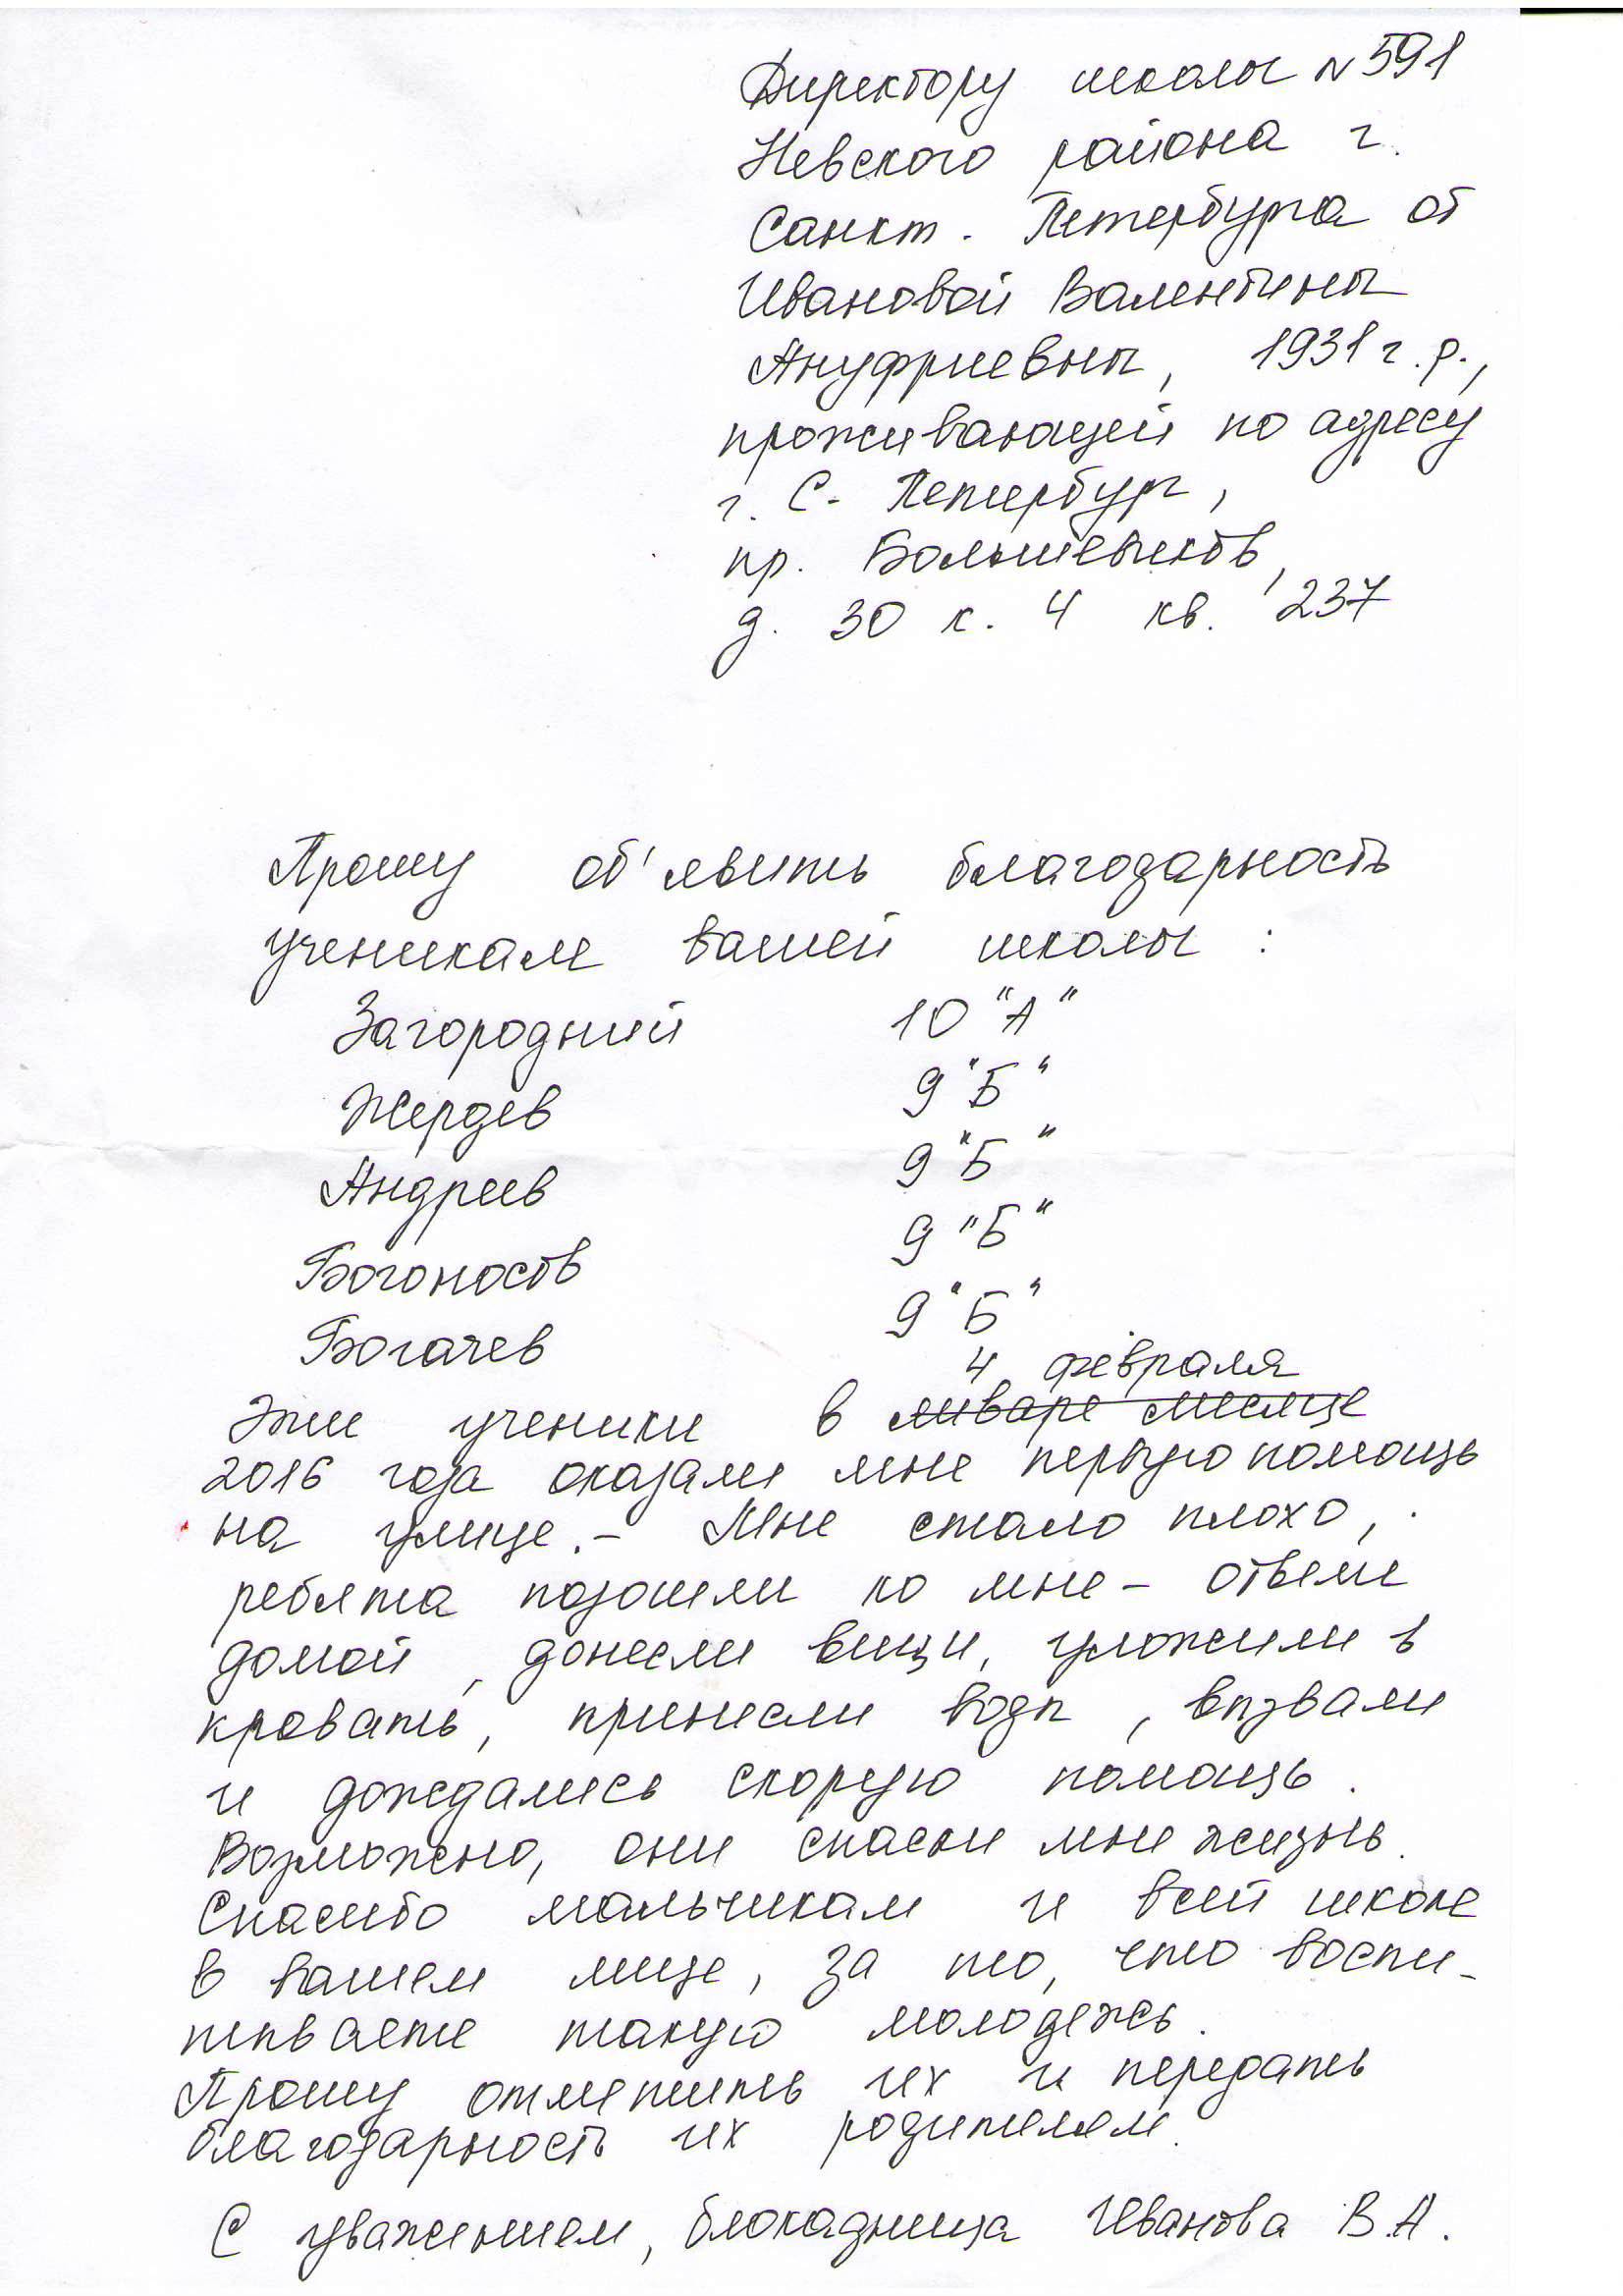 Директору школы N 591
Невского района г.
Санкт. Петербурга от
Ивановой Валентины
Ануфриевны, 1931 г.р.,
проживающей по адресу
г. С-Петербург,
пр. Большевиков,
д. 30 к. 4 кв. 237
Прошу об'явить благодарность
ученикам вашей школы :
Загородний 10 "А"
Жердев 9 "Б"
Андреев 9 "Б"
Богоносов 9 "Б"
Богачев 9 "Б"
4 февраля
Эти ученики в январе месяце
2016 года оказали мне первую помощь
на улице. – Мне стало плохо,
ребята подошли ко мне – отвели
домой, донесли вещи, уложили в
кровать, принесли воды, вызвали
и дождались скорую помощь.
Возможно, они спасли мне жизнь.
Спасибо мальчикам и всей школе
в вашем лице, за то, что воспи-
тываете такую молодежь.
Прошу отметить их и передать
благодарность их родителям.
С уважением, блокадница Иванова В.А.